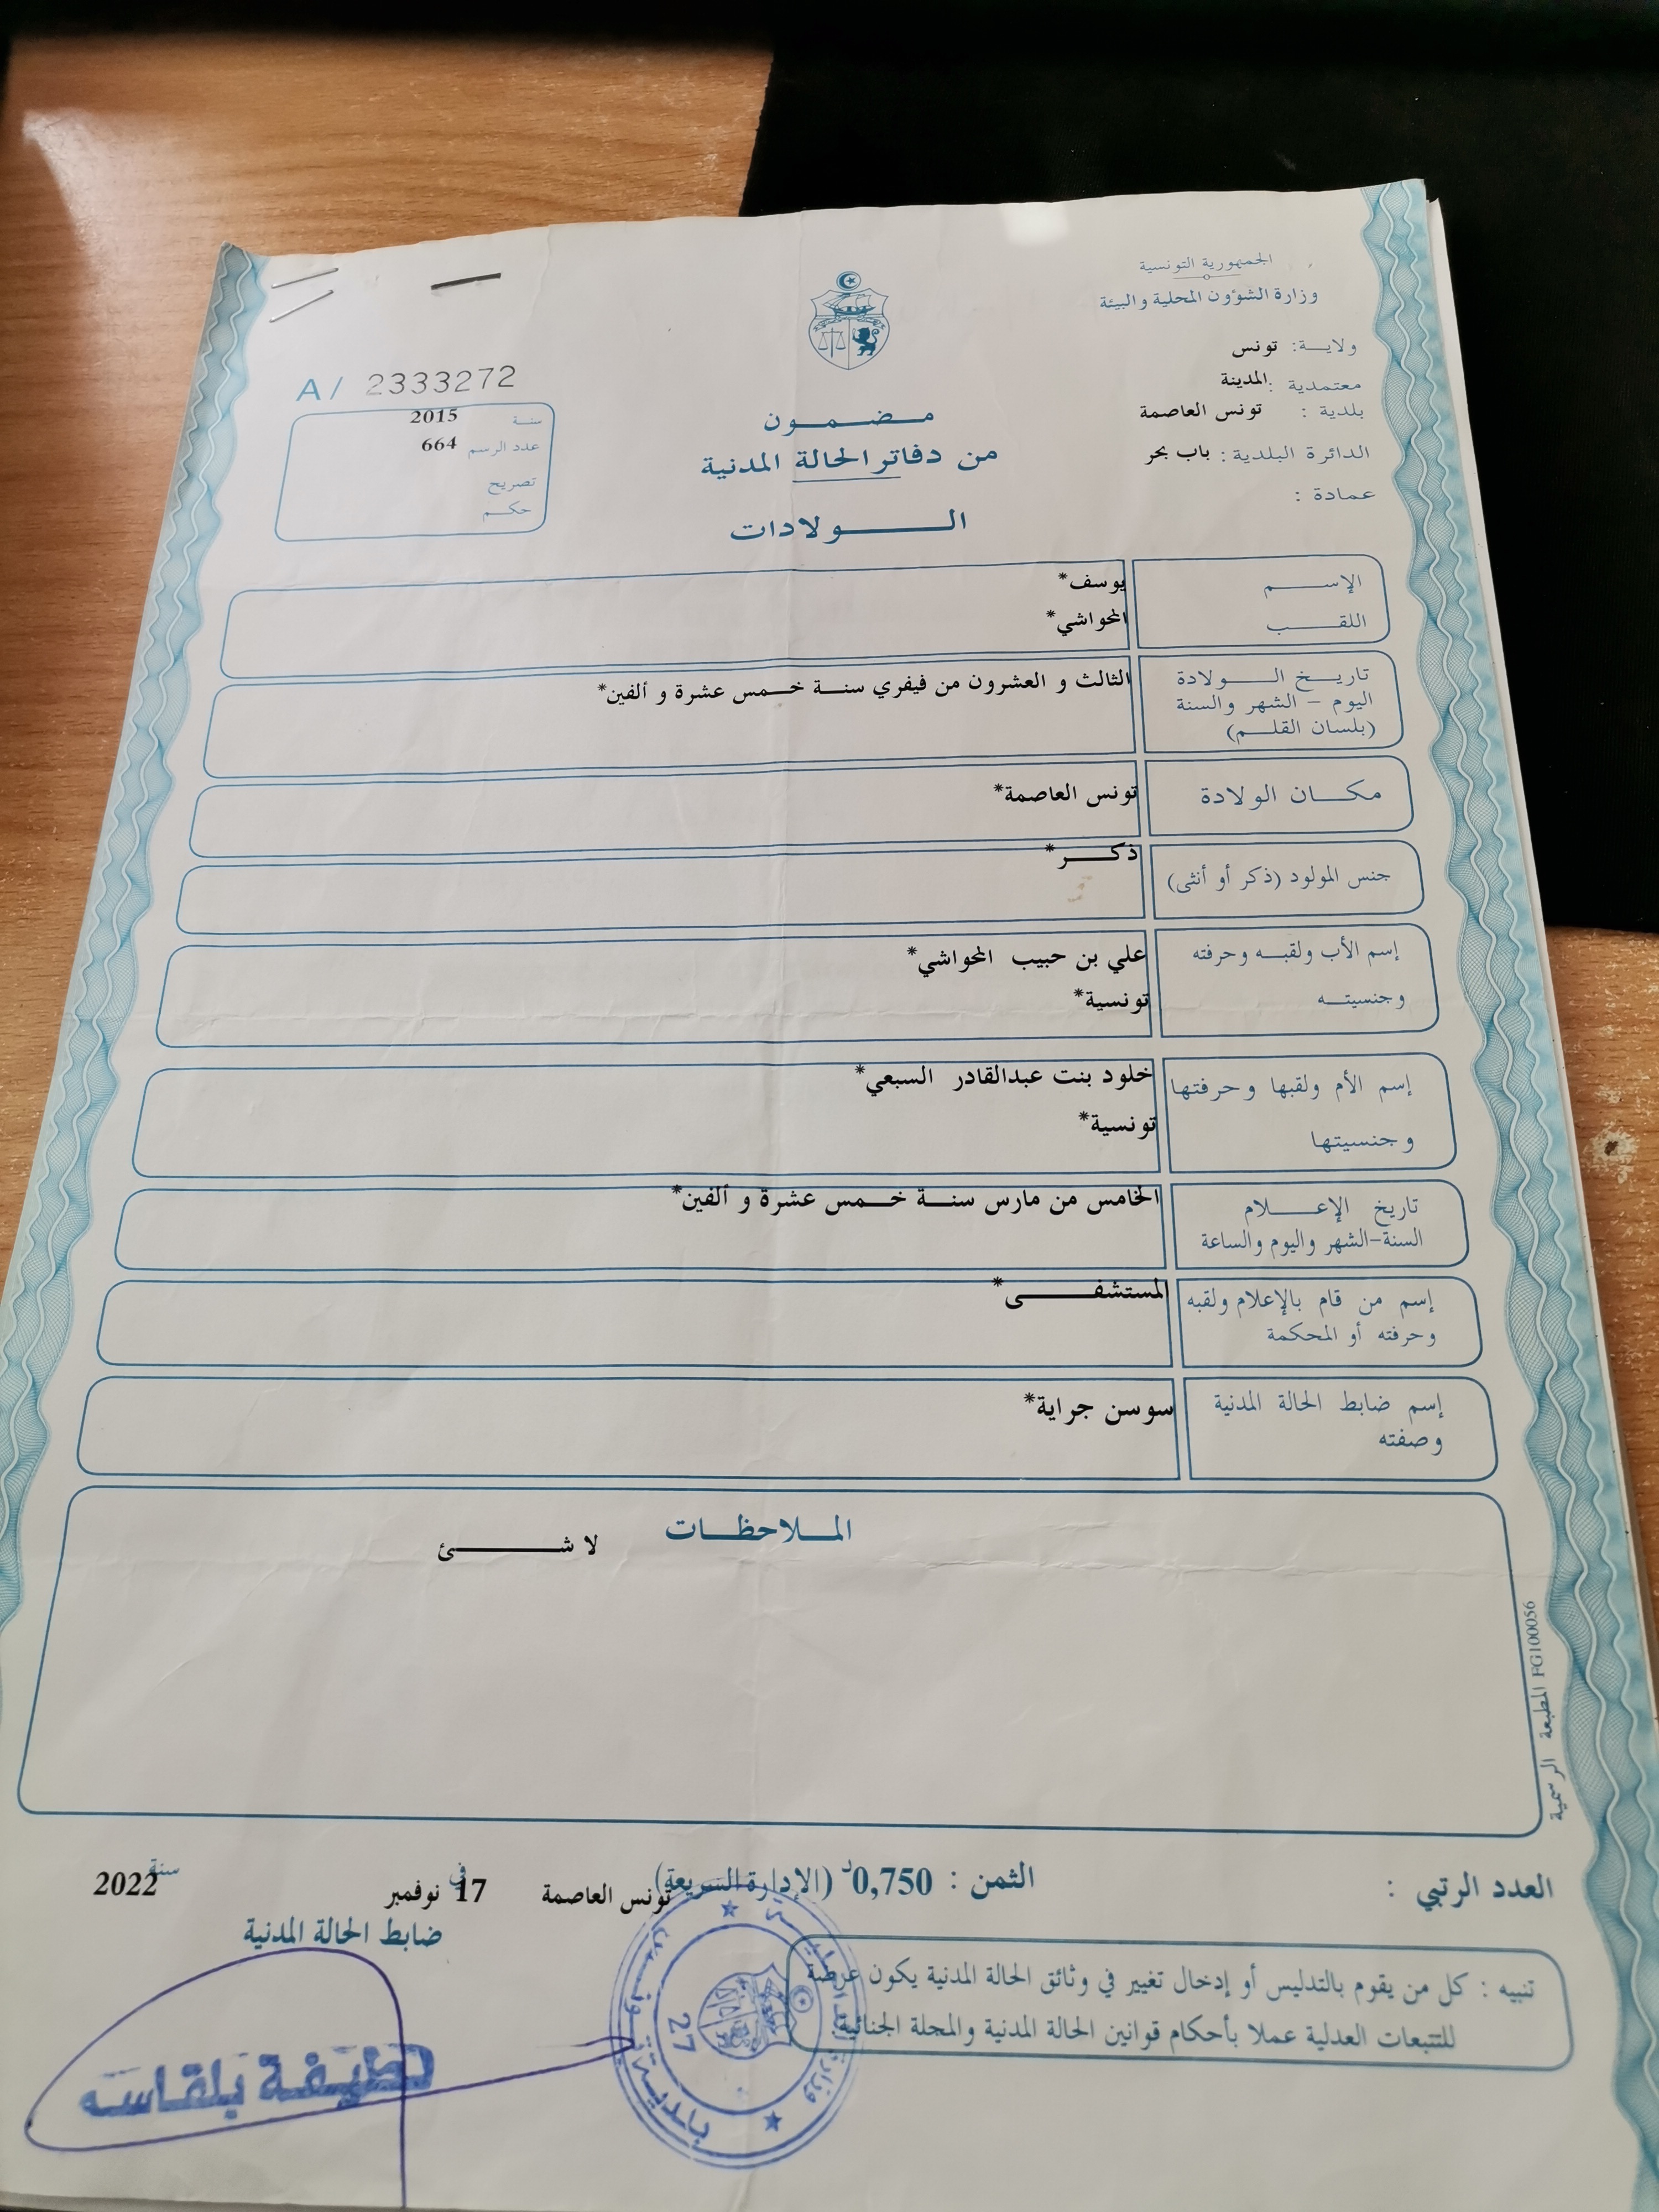 الجمهورية التونسية
وزارة الشؤون المحلية والبيئة
ولايـــة: تونس
معتمدية: المدينة
بلدية : تونس العاصمة
الدائرة البلدية : باب بحر
عمادة :
A/ 2333272
سنة 2015
عدد الرسم 664
تصريح
حكم
مضمون
من دفاتر الحالة المدنية
الـولادات
الإسـم يوسف*
اللقـب المحواشي*
تاريـخ الـولادة الثالث و العشرون من فيفري سنة خمس عشرة و ألفين*
اليوم – الشهر والسنة
(بلسان القلـم)
مكـان الولادة تونس العاصمة*
جنس المولود (ذكر أو أنثى) ذكـر*
إسم الأب ولقبـه وحرفته علي بن حبيب المحواشي*
وجنسيتـه تونسية*
إسم الأم ولقبها وحرفتها خلود بنت عبدالقادر السبعي*
وجنسيتها تونسية*
تاريخ الإعـلام الخامس من مارس سنة خمس عشرة و ألفين*
السنة-الشهر واليوم والساعة
إسم من قام بالإعلام ولقبه المستشفـى*
وحرفته أو المحكمة
إسم ضابط الحالة المدنية سوسن جراية*
وصفته
الملاحظات
لا شـئ
المطبعة الرسمية FG100056
العدد الرتبي :
الثمن : 0,750د (الإدارة السريعة)
تونس العاصمة في 17 نوفمبر سنة 2022
ضابط الحالة المدنية
تنبيه : كل من يقوم بالتدليس أو إدخال تغيير في وثائق الحالة المدنية يكون عرضة
للتتبعات العدلية عملا بأحكام قوانين الحالة المدنية والمجلة الجنائية
27